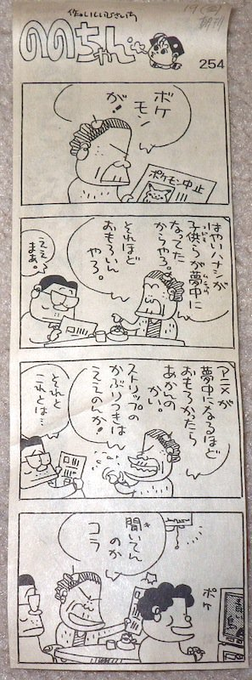 作・いしいひさいち
ののちゃん
254
ポケモン
が!
ポケモン中止
はやいハナシが
子供らが夢中に
なってた
からやろ。
それほど
おもろいん
やろ。
ええ
まあ。
アニメが
夢中になるほど
おもろかったら
あかんの
かい。
ストリップの
かぶりつきは
ええのんか!
それと
これとは…
聞いてん
のか
コラ
ポケ